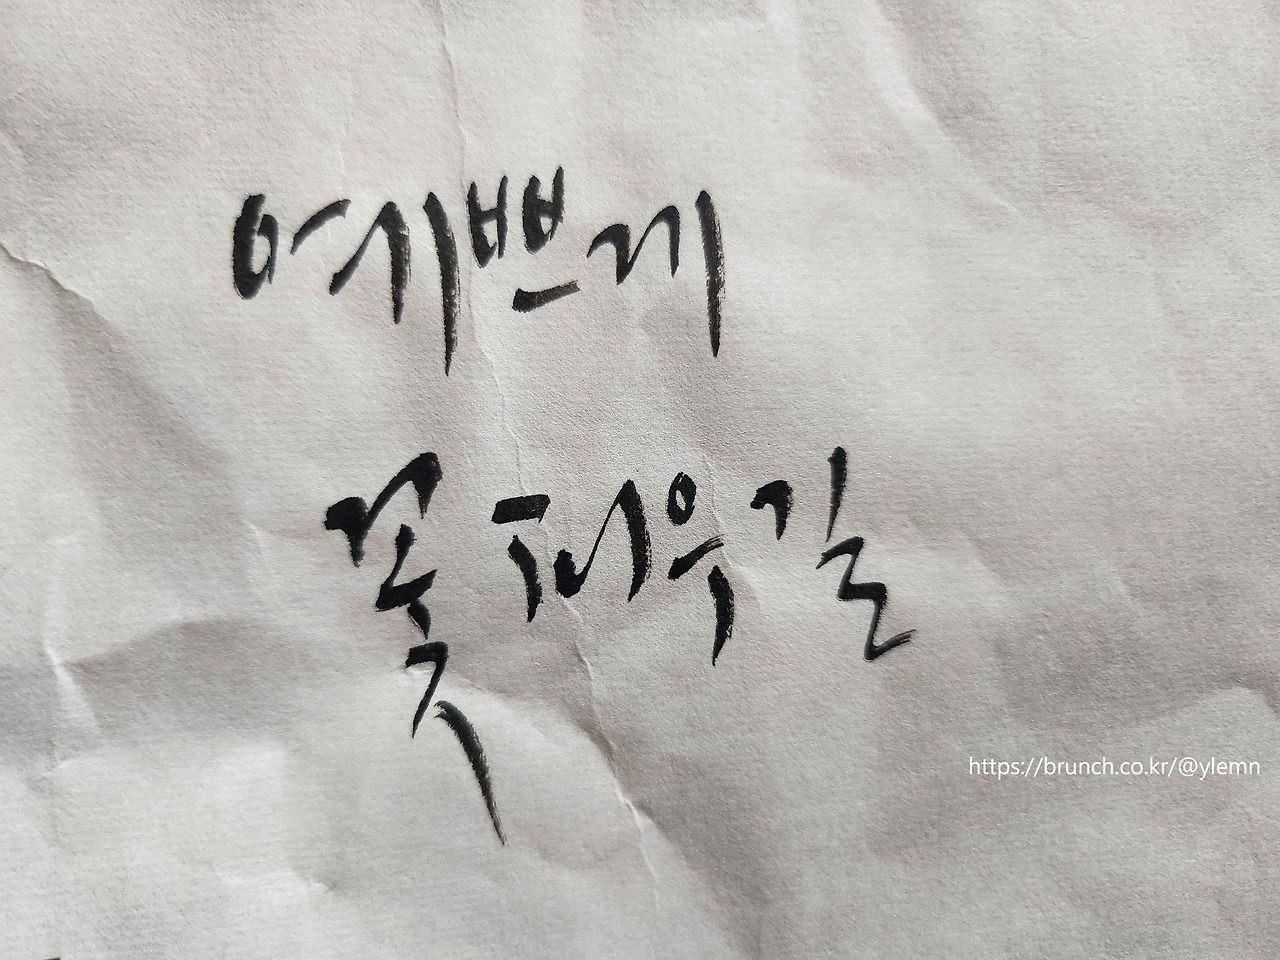 예쁘게
꽃 피우길
https://brunch.co.kr/@ylemn